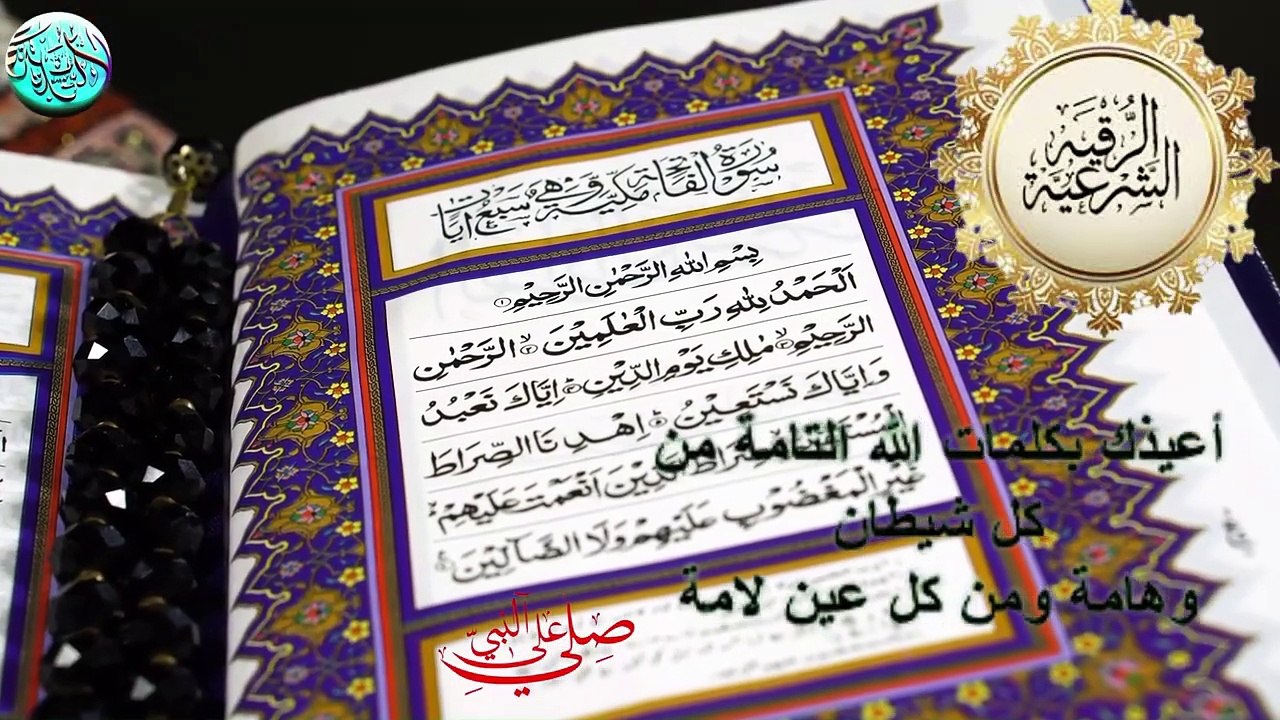 الرُّقيَه
الشَّرعيَّة
سُورَةُ الْفَاتِحَةِ مَكِّيَّةٌ وَهِيَ سَبْعُ آيَاتٍ
بِسْمِ اللهِ الرَّحْمٰنِ الرَّحِيْمِ ۝١
اَلْحَمْدُ لِلّٰهِ رَبِّ الْعٰلَمِيْنَ ۝٢ الرَّحْمٰنِ
الرَّحِيْمِ ۝٣ مٰلِكِ يَوْمِ الدِّيْنِ ۝٤ اِيَّاكَ نَعْبُدُ
وَاِيَّاكَ نَسْتَعِيْنُ ۝٥ اِهْدِنَا الصِّرَاطَ
الَّذِيْنَ اَنْعَمْتَ عَلَيْهِمْ
غَيْرِ الْمَغْضُوْبِ عَلَيْهِمْ وَلَا الضَّآلِّيْنَ
أعيذك بكلمات الله التامة من
كل شيطان
وهامة ومن كل عين لامة
صلي على النبي